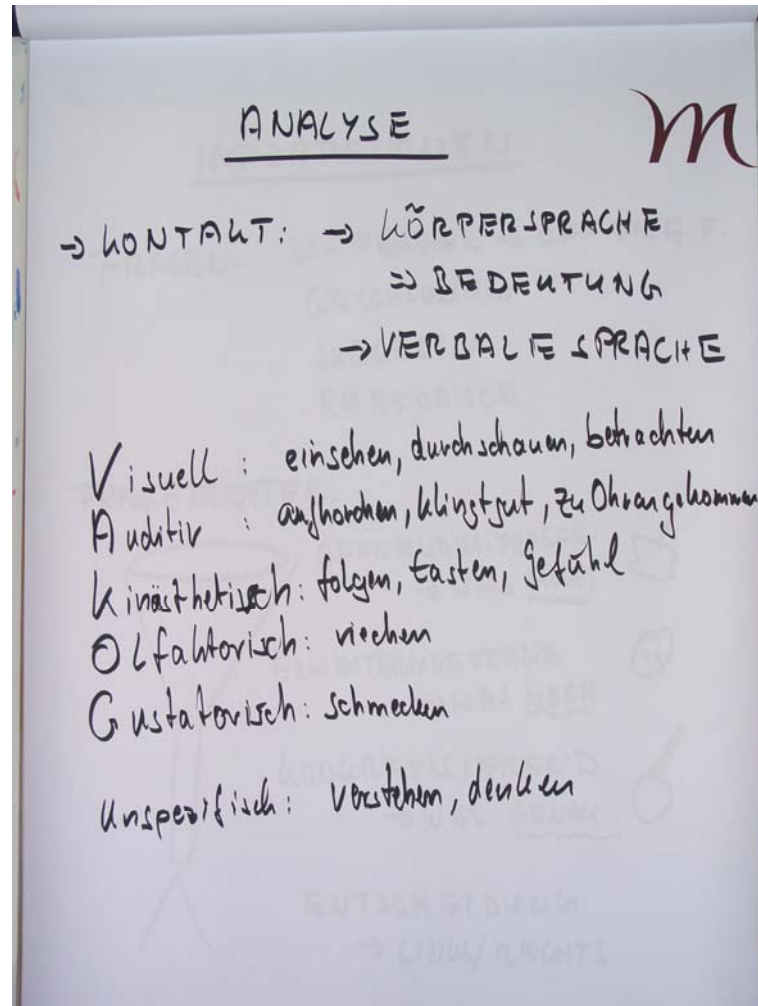 ANALYSE
m
→ KONTAKT: → KÖRPERSPRACHE
⇒ BEDEUTUNG
→ VERBALE SPRACHE
Visuell : einsehen, durchschauen, betrachten
Auditiv : aufhorchen, klingt gut, zu Ohr angekommen
Kinästhetisch: folgen, tasten, Gefühl
Olfaktorisch: riechen
Gustatorisch: schmecken
Unspezifisch: verstehen, denken